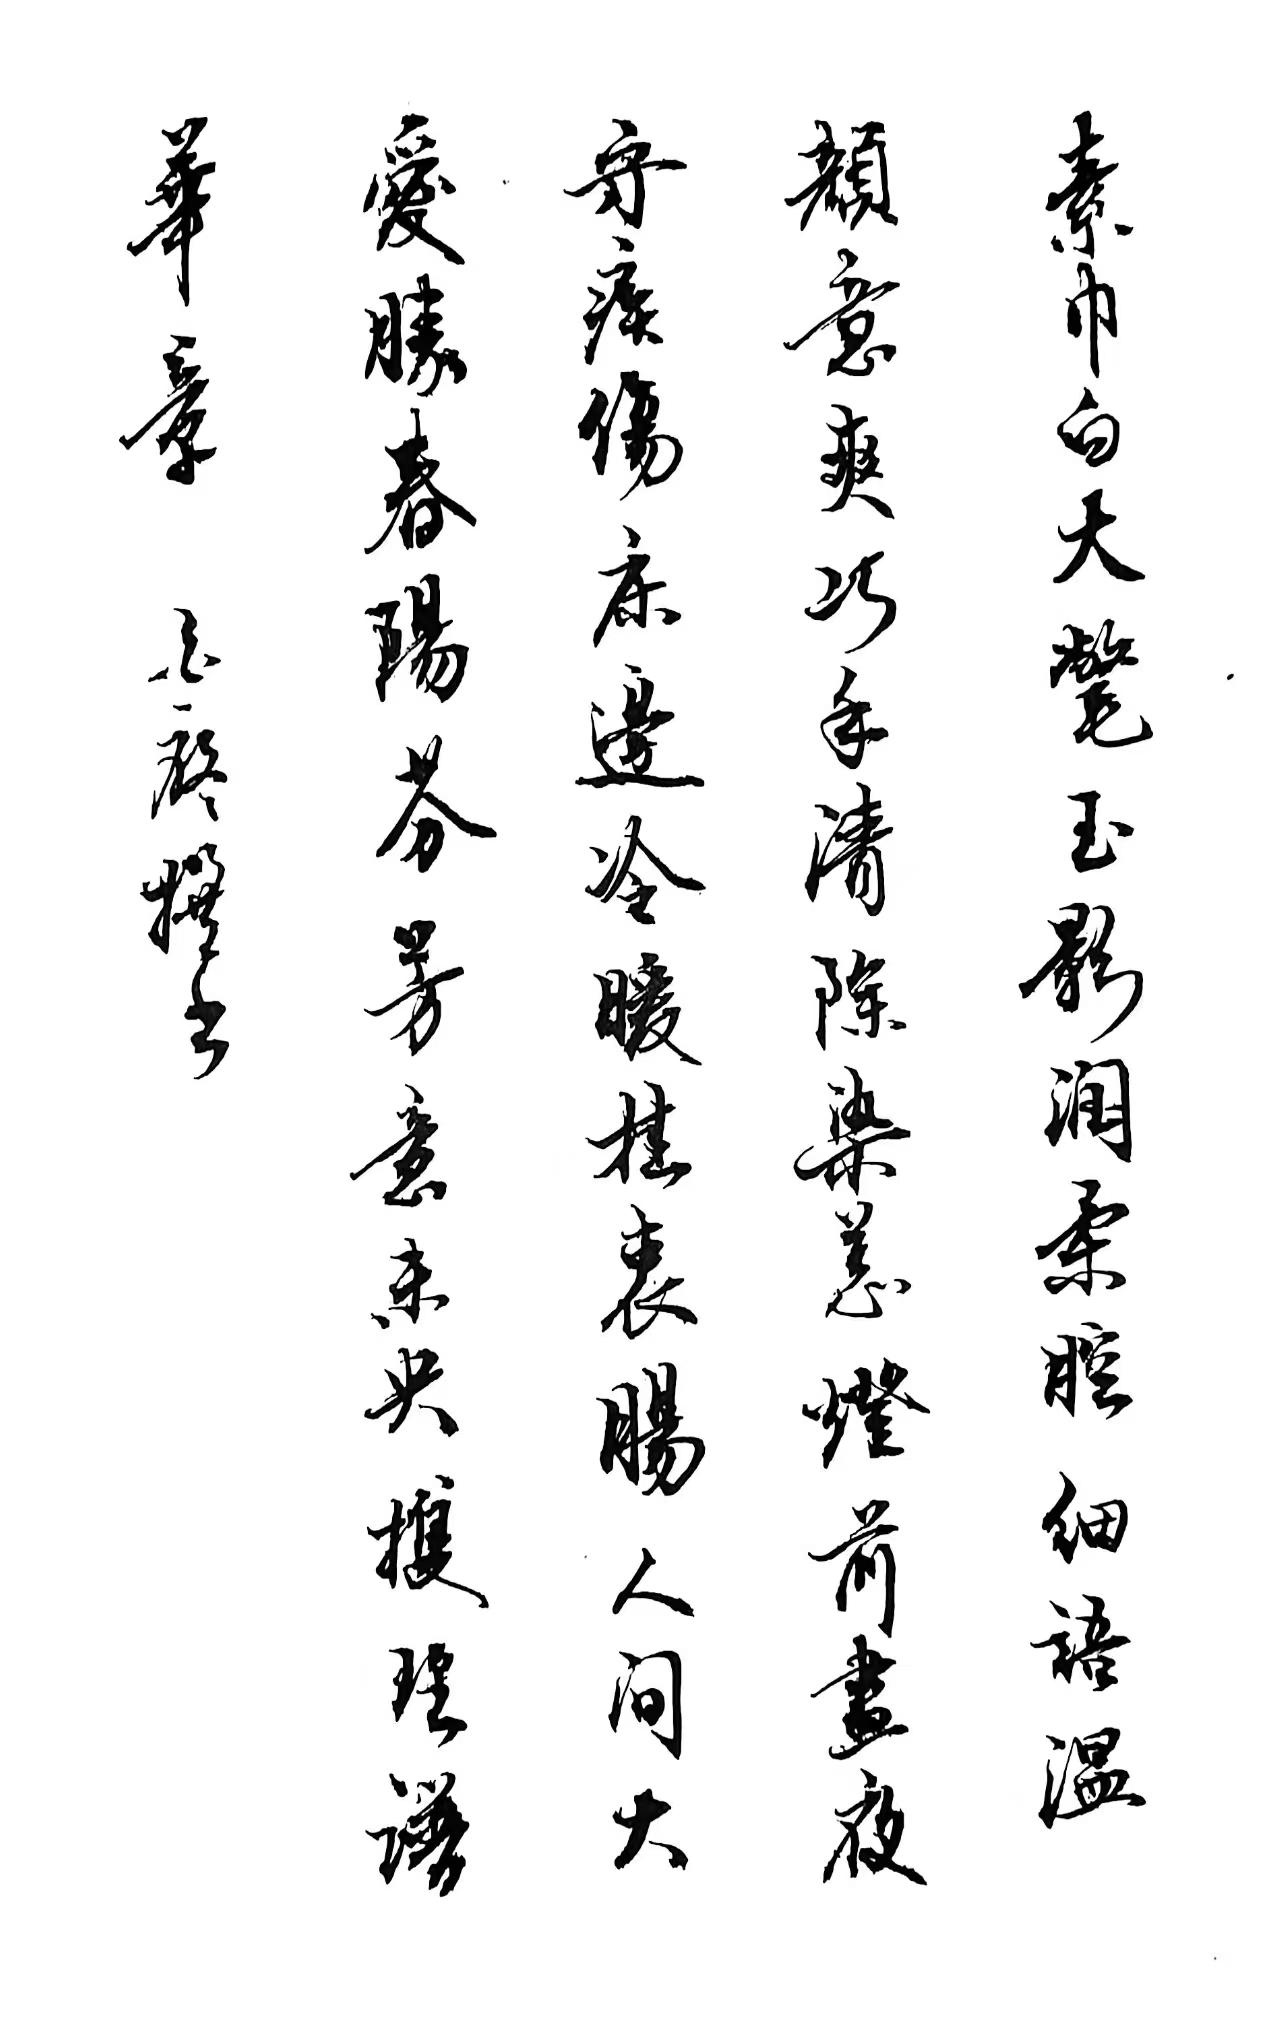 素巾白大氅玉影潤柔腔細語溫
顏意爽巧手清除染恙燈前晝夜
守痍傷床邊冷暖挂衷腸人间大
愛勝春陽芬芳意未央擭瑤譜
華章 撰书